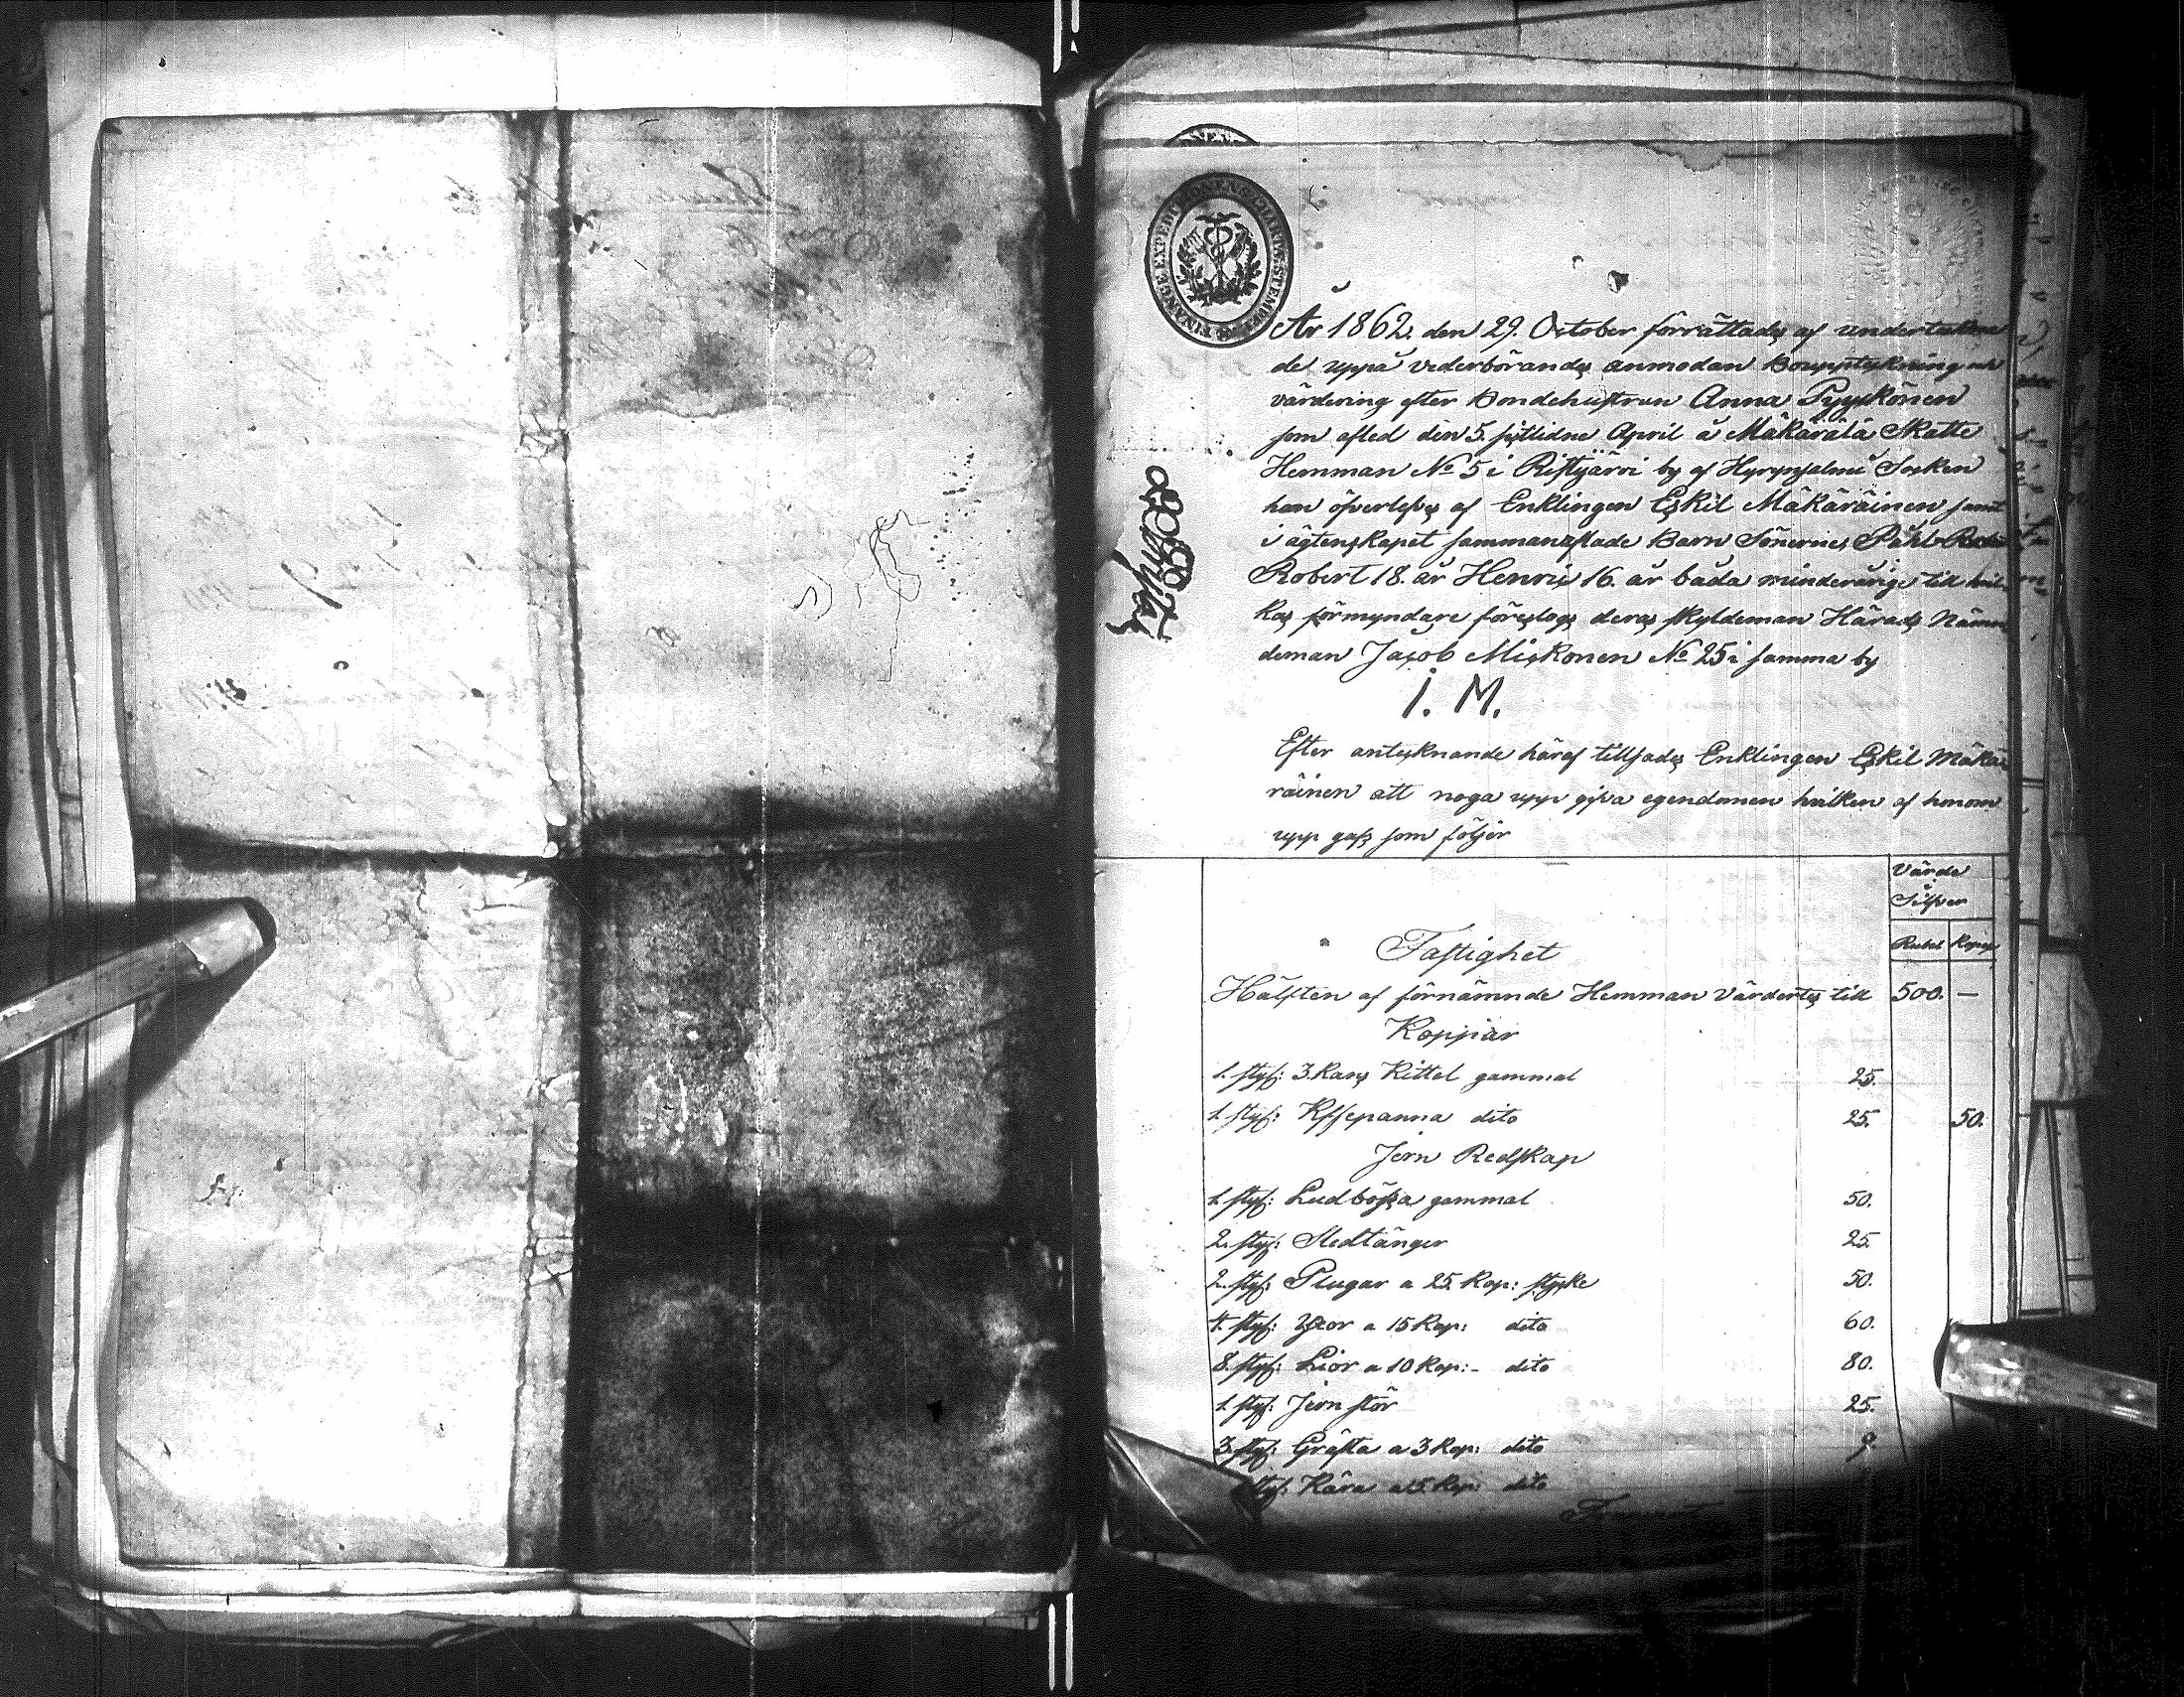 År 1862. den 29. October förrättades af underteckna
de uppå vederbörandes anmodan Bouppteckning och
värdering efter Bondehustrun Anna Pyykönen
som afled den 5. sistlidne April å Mäkärälä Skatte
Hemman No 5 i Ristijärvi by af Hyrynsalmi Socken
hon öfverlefves af Enklingen Eskil Mäkäräinen samt
i ägtenskapet sammanaflade Barn Sönerne, Påhl
Robert 18. år Henric 16. år båda minderårige till hvil-
kas förmyndare föreslogs deras skyldeman Härads Näm
deman Jacob Miskonen No 25 i samma by
I. M.
Efter antecknande häraf tillsades Enklingen Eskil Mäkä
räinen att noga upp gifva egendomen hvilken af honom
upp gafs som följer
Värde
Silfver
Rubel Kopek
Fastighet
Hälften af förnämnde Hemman värdertes till 500. —
Koppar
1. styk: 3. Kans Kittel gammal 25.
1. styk: Kaffepanna dito 25. 50.
Jern Redskap
1. styk: Lodbössa gammal 50.
2. styk: Stedtänger 25.
2. styk: Plugar a 25. Kop: stycke 50.
4. styk: Yxor a 15 Kop: dito 60.
8. styk: Lior a 10 Kop:- dito 80.
1. styk: Jern stör 25.
3. styk: Gräfta a 3 Kop: dito 9.
styk: Kära a 15. Kop: dito